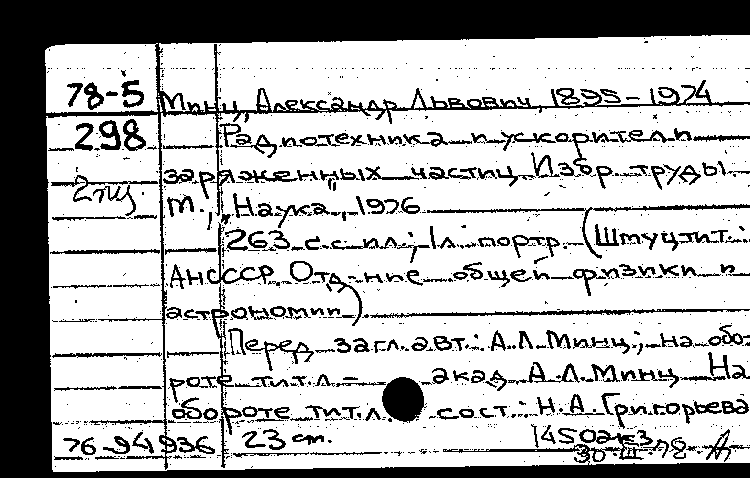 78-5 Минц, Александр Львович, 1895-1974
298 Радиотехника и ускорители
заряженных частиц. Избр. труды.
М., "Наука", 1976
263 с. с ил.; 1л. портр. (Шмуцтит.:
АН СССР. Отд-ние общей физики и
астрономии)
Перед загл. авт.: А.Л. Минц; на обо-
роте тит.л. - акад. А.Л. Минц. На
обороте тит.л. сост.: Н.А. Григорьева
76-94936 23 см.